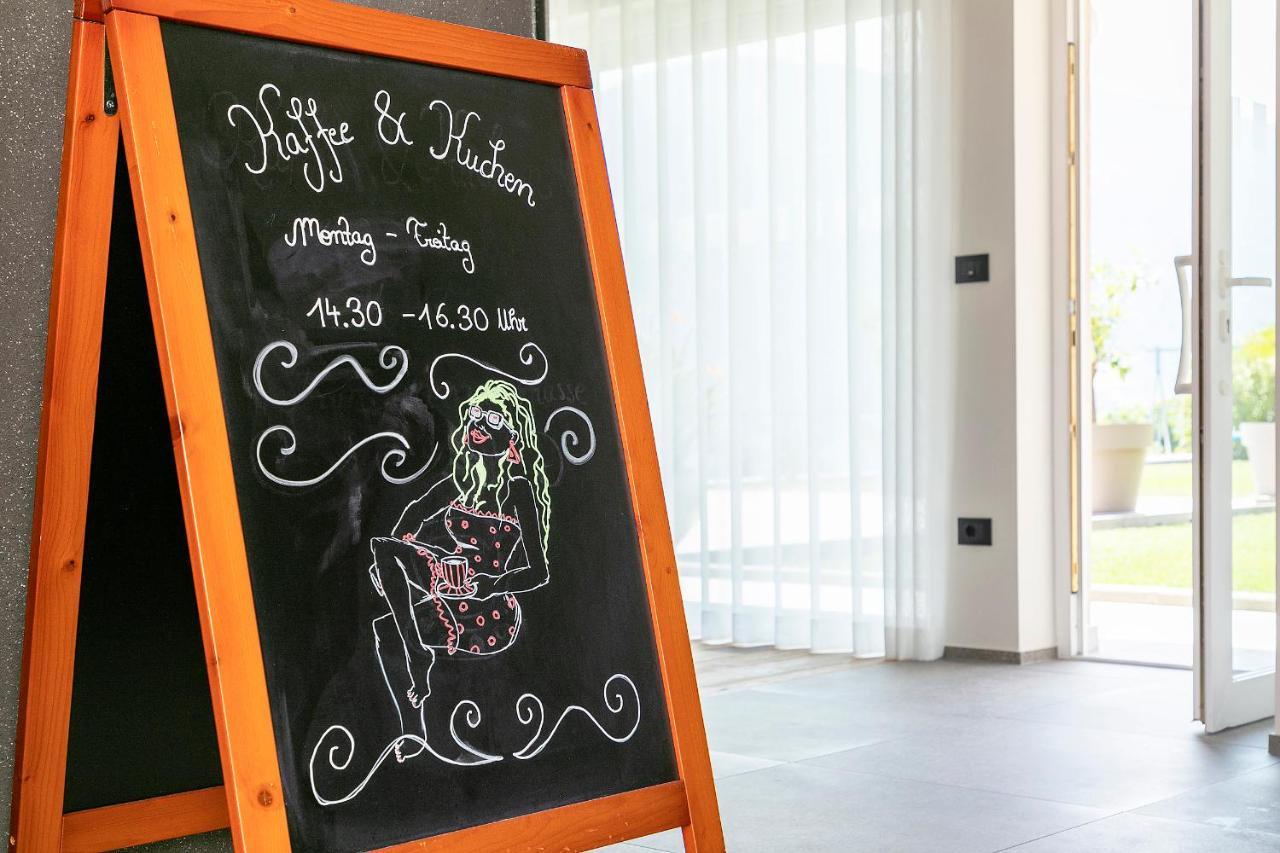 Kaffee & Kuchen
Montag - Freitag
14.30 - 16.30 Uhr